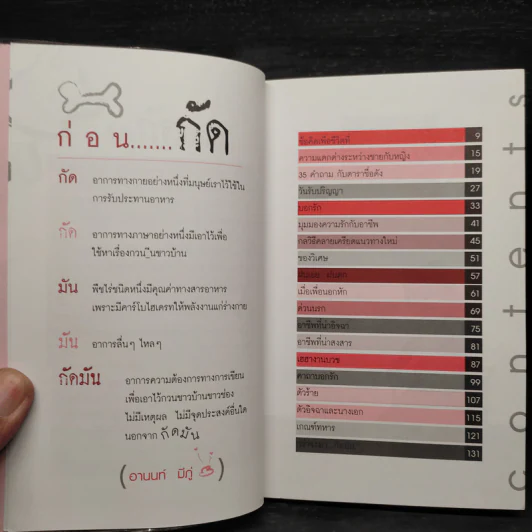 ก่อน.......กัด
กัด อาการทางกายอย่างหนึ่งที่มนุษย์เราไว้ใช้ใน
การรับประทานอาหาร
กัด อาการทางภาษาอย่างหนึ่งมีเอาไว้เพื่อ
ใช้หาเรื่องกวนชาวบ้าน
มัน พืชไร่ชนิดหนึ่งมีคุณค่าทางสารอาหาร
เพราะมีคาร์โบไฮเดรทให้พลังงานแก่ร่างกาย
มัน อาการลื่นๆ ไหลๆ
กัดมัน อาการความต้องการทางการเขียน
เพื่อเอาไว้กวนชาวบ้านชาวช่อง
ไม่มีเหตุผล ไม่มีจุดประสงค์อื่นใด
นอกจาก กัดมัน
(อานนท์ มีภู่)
contents
ข้อคิดเพื่อชีวิตที่ 9
ความแตกต่างระหว่างชายกับหญิง 15
35 คำถาม กับดาราชื่อดัง 19
วันรับปริญญา 27
บอกรัก 33
มุมมองความรักกับอาชีพ 41
กลวิธีคลายเครียดแนวทางใหม่ 45
ของวิเศษ 51
57
เมื่อเพื่อนอกหัก 61
ด่วนนรก 69
อาชีพที่น่าอิจฉา 75
อาชีพที่น่าสงสาร 81
เฮฮางานบวช 87
คาถามอกรัก 99
ตัวร้าย 107
ตัวอิจฉาและนางเอก 115
เกณฑ์ทหาร 121
131